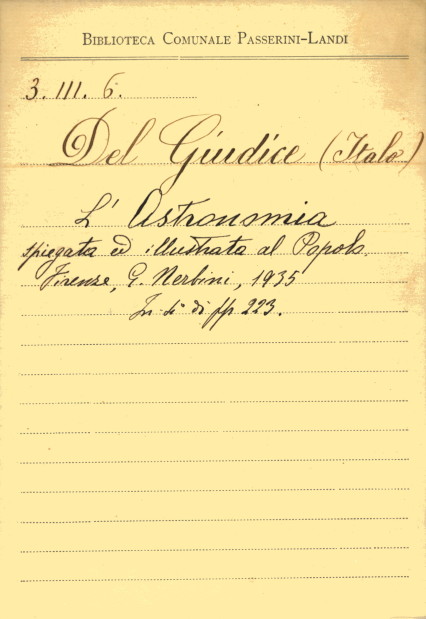 BIBLIOTECA COMUNALE PASSERINI-LANDI
3. III. 6.
Del Giudice (Italo)
L' Astronomia
spiegata ed illustrata al Popolo.
Firenze, G. Nerbini, 1935
In di pp 223.